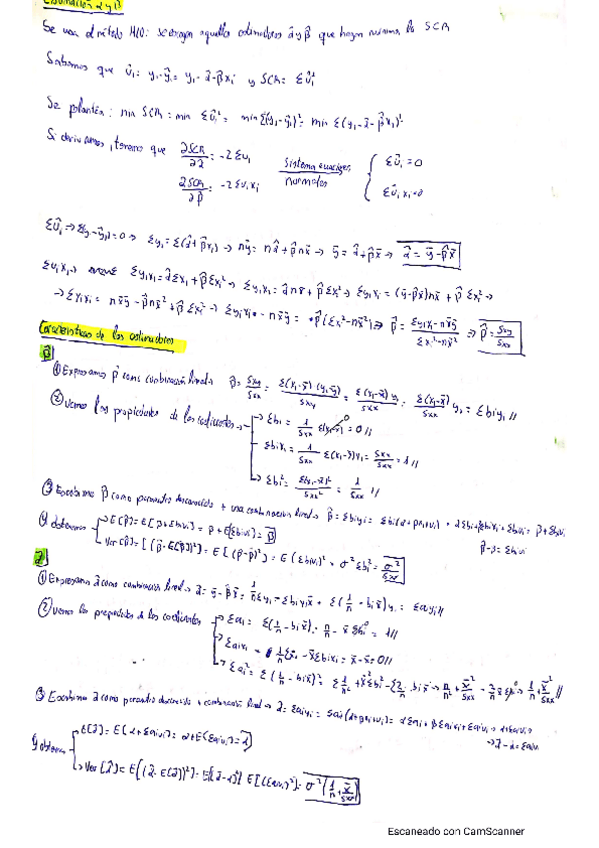 Estimación α y β
Se usa el método MCO: se escogen aquellos estimadores α̂ y β̂ que hagan mínima la SCR
Sabemos que û_i = y_i - ŷ_i = y_i - α̂ - β̂x_i y SCR = Σû_i²
Se plantea: min SCR = min Σû_i² = min Σ(y_i - ŷ_i)² = min Σ(y_i - α̂ - β̂x_i)²
Si derivamos, tenemos que ∂SCR/∂α̂ = -2Σu_i Sistema ecuaciones normales { Σû_i = 0
∂SCR/∂β̂ = -2Σu_i x_i Σû_i x_i = 0
Σû_i → Σ(y_i - ŷ_i) = 0 → Σy_i = Σ(α̂ + β̂x_i) → nȳ = nα̂ + β̂nx̄ → ȳ = α̂ + β̂x̄ → α̂ = ȳ - β̂x̄
Σy_i x_i = α̂Σx_i + β̂Σx_i² → Σy_i x_i = α̂nx̄ + β̂Σx_i² → Σy_i x_i = (ȳ - β̂x̄)nx̄ + β̂Σx_i² →
→ Σy_i x_i = nx̄ȳ - β̂nx̄² + β̂Σx_i² → Σy_i x_i - nx̄ȳ = β̂(Σx_i² - nx̄²) → β̂ = (Σy_i x_i - nx̄ȳ)/(Σx_i² - nx̄²) → β̂ = Sxy/Sxx
Características de los estimadores
β̂
① Expresamos β̂ como combinación lineal β̂ = Sxy/Sxx = Σ(x_i - x̄)(y_i - ȳ)/Sxy = Σ(x_i - x̄)y_i/Sxx = Σ(x_i - x̄)/Sxx y_i = Σb_i y_i //
② Vemos las propiedades de los coeficientes → Σb_i = 1/Sxx Σ(x_i - x̄) = 0 //
→ Σb_i x_i = 1/Sxx Σ(x_i - x̄)x_i = Sxx/Sxx = 1 //
→ Σb_i² = Σ(x_i - x̄)²/Sxx² = 1/Sxx //
③ Escribimos β̂ como parámetro desconocido + una combinación lineal → β̂ = Σb_i y_i = Σb_i(α + βx_i + u_i) = αΣb_i + βΣb_i x_i + Σb_i u_i = β + Σb_i u_i
β̂ - β = Σb_i u_i
④ obtenemos → E[β̂] = E[β + Σb_i u_i] = β + E[Σb_i u_i] = β
→ Var[β̂] = E[(β̂ - E(β̂))²] = E[(β̂ - β)²] = E(Σb_i u_i)² = σ²Σb_i² = σ²/Sxx
α̂
① Expresamos α̂ como combinación lineal → α̂ = ȳ - β̂x̄ = 1/n Σy_i - Σb_i y_i x̄ = Σ(1/n - b_i x̄)y_i = Σa_i y_i //
② Vemos las propiedades de los coeficientes → Σa_i = Σ(1/n - b_i x̄) = n/n - x̄Σb_i = 1 //
→ Σa_i x_i = 1/n Σx_i - x̄Σb_i x_i = x̄ - x̄ = 0 //
→ Σa_i² = Σ(1/n - b_i x̄)² = Σ1/n² + x̄²Σb_i² - Σ2/n b_i x̄ → n/n² + x̄²/Sxx - 2/n x̄Σb_i → 1/n + x̄²/Sxx //
③ Escribimos α̂ como parámetro desconocido + combinación lineal → α̂ = Σa_i y_i = Σa_i(α + βx_i + u_i) = αΣa_i + βΣa_i x_i + Σa_i u_i → α + Σa_i u_i
→ α̂ - α = Σa_i u_i
④ obtenemos → E[α̂] = E[α + Σa_i u_i] = α + E(Σa_i u_i) = α
→ Var[α̂] = E[(α̂ - E(α̂))²] = E[(α̂ - α)²] E[(Σa_i u_i)²] = σ²(1/n + x̄/Sxx)
Escaneado con CamScanner